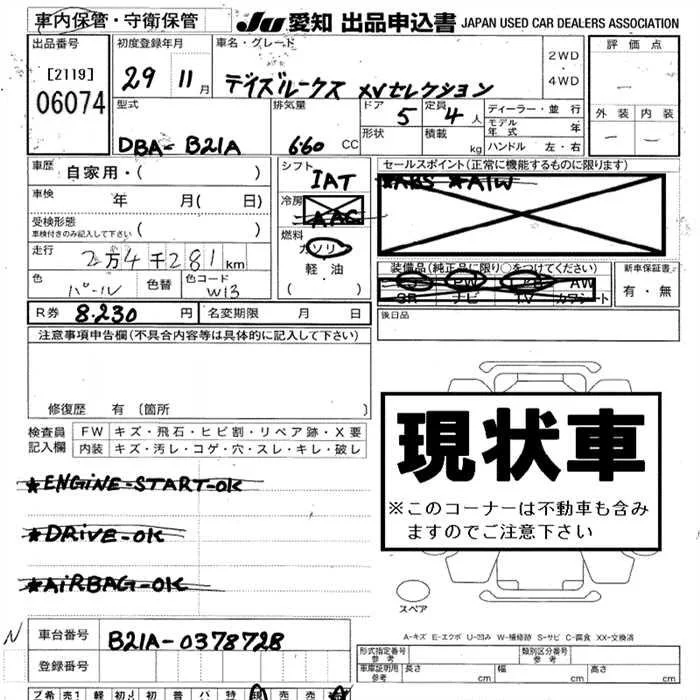 車内保管・守衛保管 JU 愛知 出品申込書 JAPAN USED CAR DEALERS ASSOCIATION
出品番号 初度登録年月 車名・グレード 評価点
[2119] 06074 29 11月 デイズルークス XVセレクション 2WD ・ 4WD
外装 内装
型式 排気量 ドア 5 定員 4人 ディーラー・並行
DBA-B21A 660 CC 形状 積載 kg モデル年式 年
ハンドル 左・右
車歴 自家用・( ) シフト IAT セールスポイント(正常に機能するものに限ります)
*ABS *A/W
車検 年 月( 日) 冷房 AAC
受検形態 車検付きのみ記入して下さい ( ) 燃料 ガソリン
走行 2万4千281km 軽・油 ( )
装備品(純正品に限り○をつけてください) 新車保証書
PW AW 有・無
SR ナビ TV カワシート
色 パール 色替 色コード W13
後日品
R券 8.230 円 名変期限 月 日
注意事項申告欄(不具合内容等は具体的に記入して下さい)
修復歴 有(箇所 )
現状車
※このコーナーは不動車も含み
ますのでご注意下さい
検査員 記入欄 FW キズ・飛石・ヒビ割・リペア跡・X要
内装 キズ・汚レ・コゲ・穴・スレ・キレ・破レ
*ENGINE-START-OK
*DRIVE-OK
*AIRBAG-OK
スペア
N 車台番号 B21A-0378728
A-キズ E-エクボ U-凹み W-補修跡 S-サビ C-腐食 XX-交換済
形式指定番号 参考 類別区分番号 参考
登録番号 車庫証明用 参考 長さ cm 幅 cm 高さ cm